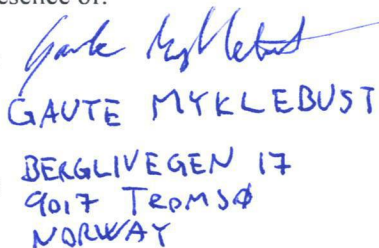 presence of:
Gaute Myklebust
GAUTE MYKLEBUST
BERGLIVEGEN 17
9017 TROMSØ
NORWAY